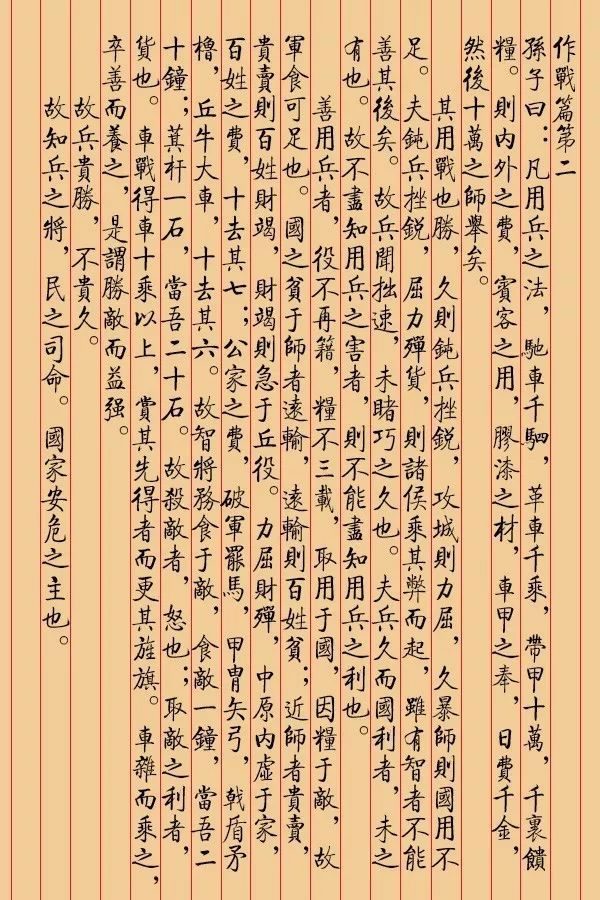 作戰篇第二
孫子曰：凡用兵之法，馳車千駟，革車千乘，帶甲十萬，千裏饋
糧。則內外之費，賓客之用，膠漆之材，車甲之奉，日費千金，
然後十萬之師舉矣。
其用戰也勝，久則鈍兵挫銳，攻城則力屈，久暴師則國用不
足。夫鈍兵挫銳，屈力殫貨，則諸侯乘其弊而起，雖有智者不能
善其後矣。故兵聞拙速，未睹巧之久也。夫兵久而國利者，未之
有也。故不盡知用兵之害者，則不能盡知用兵之利也。
善用兵者，役不再籍，糧不三載，取用于國，因糧于敵，故
軍食可足也。國之貧于師者遠輸，遠輸則百姓貧；近師者貴賣，
貴賣則百姓財竭，財竭則急于丘役。力屈財殫，中原內虛于家，
百姓之費，十去其七；公家之費，破軍罷馬，甲冑矢弓，戟盾矛
櫓，丘牛大車，十去其六。故智將務食于敵，食敵一鐘，當吾二
十鐘；萁杆一石，當吾二十石。故殺敵者，怒也；取敵之利者，
貨也。車戰得車十乘以上，賞其先得者而更其旌旗。車雜而乘之，
卒善而養之，是謂勝敵而益强。
故兵貴勝，不貴久。
故知兵之將，民之司命。國家安危之主也。